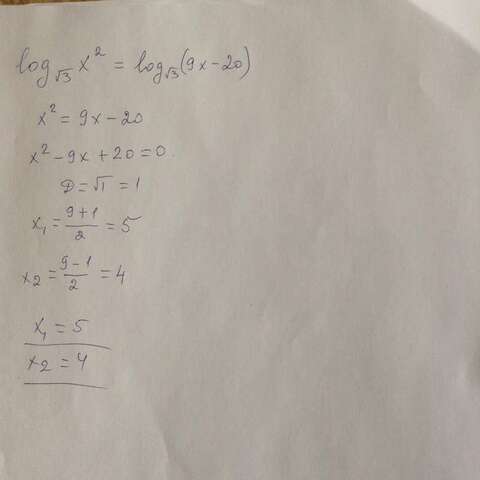 log√3 x² = log√3(9x-20)
x² = 9x - 20
x² - 9x + 20 = 0
D = √1 = 1
x₁ = (9+1)/2 = 5
x₂ = (9-1)/2 = 4
x₁ = 5
x₂ = 4